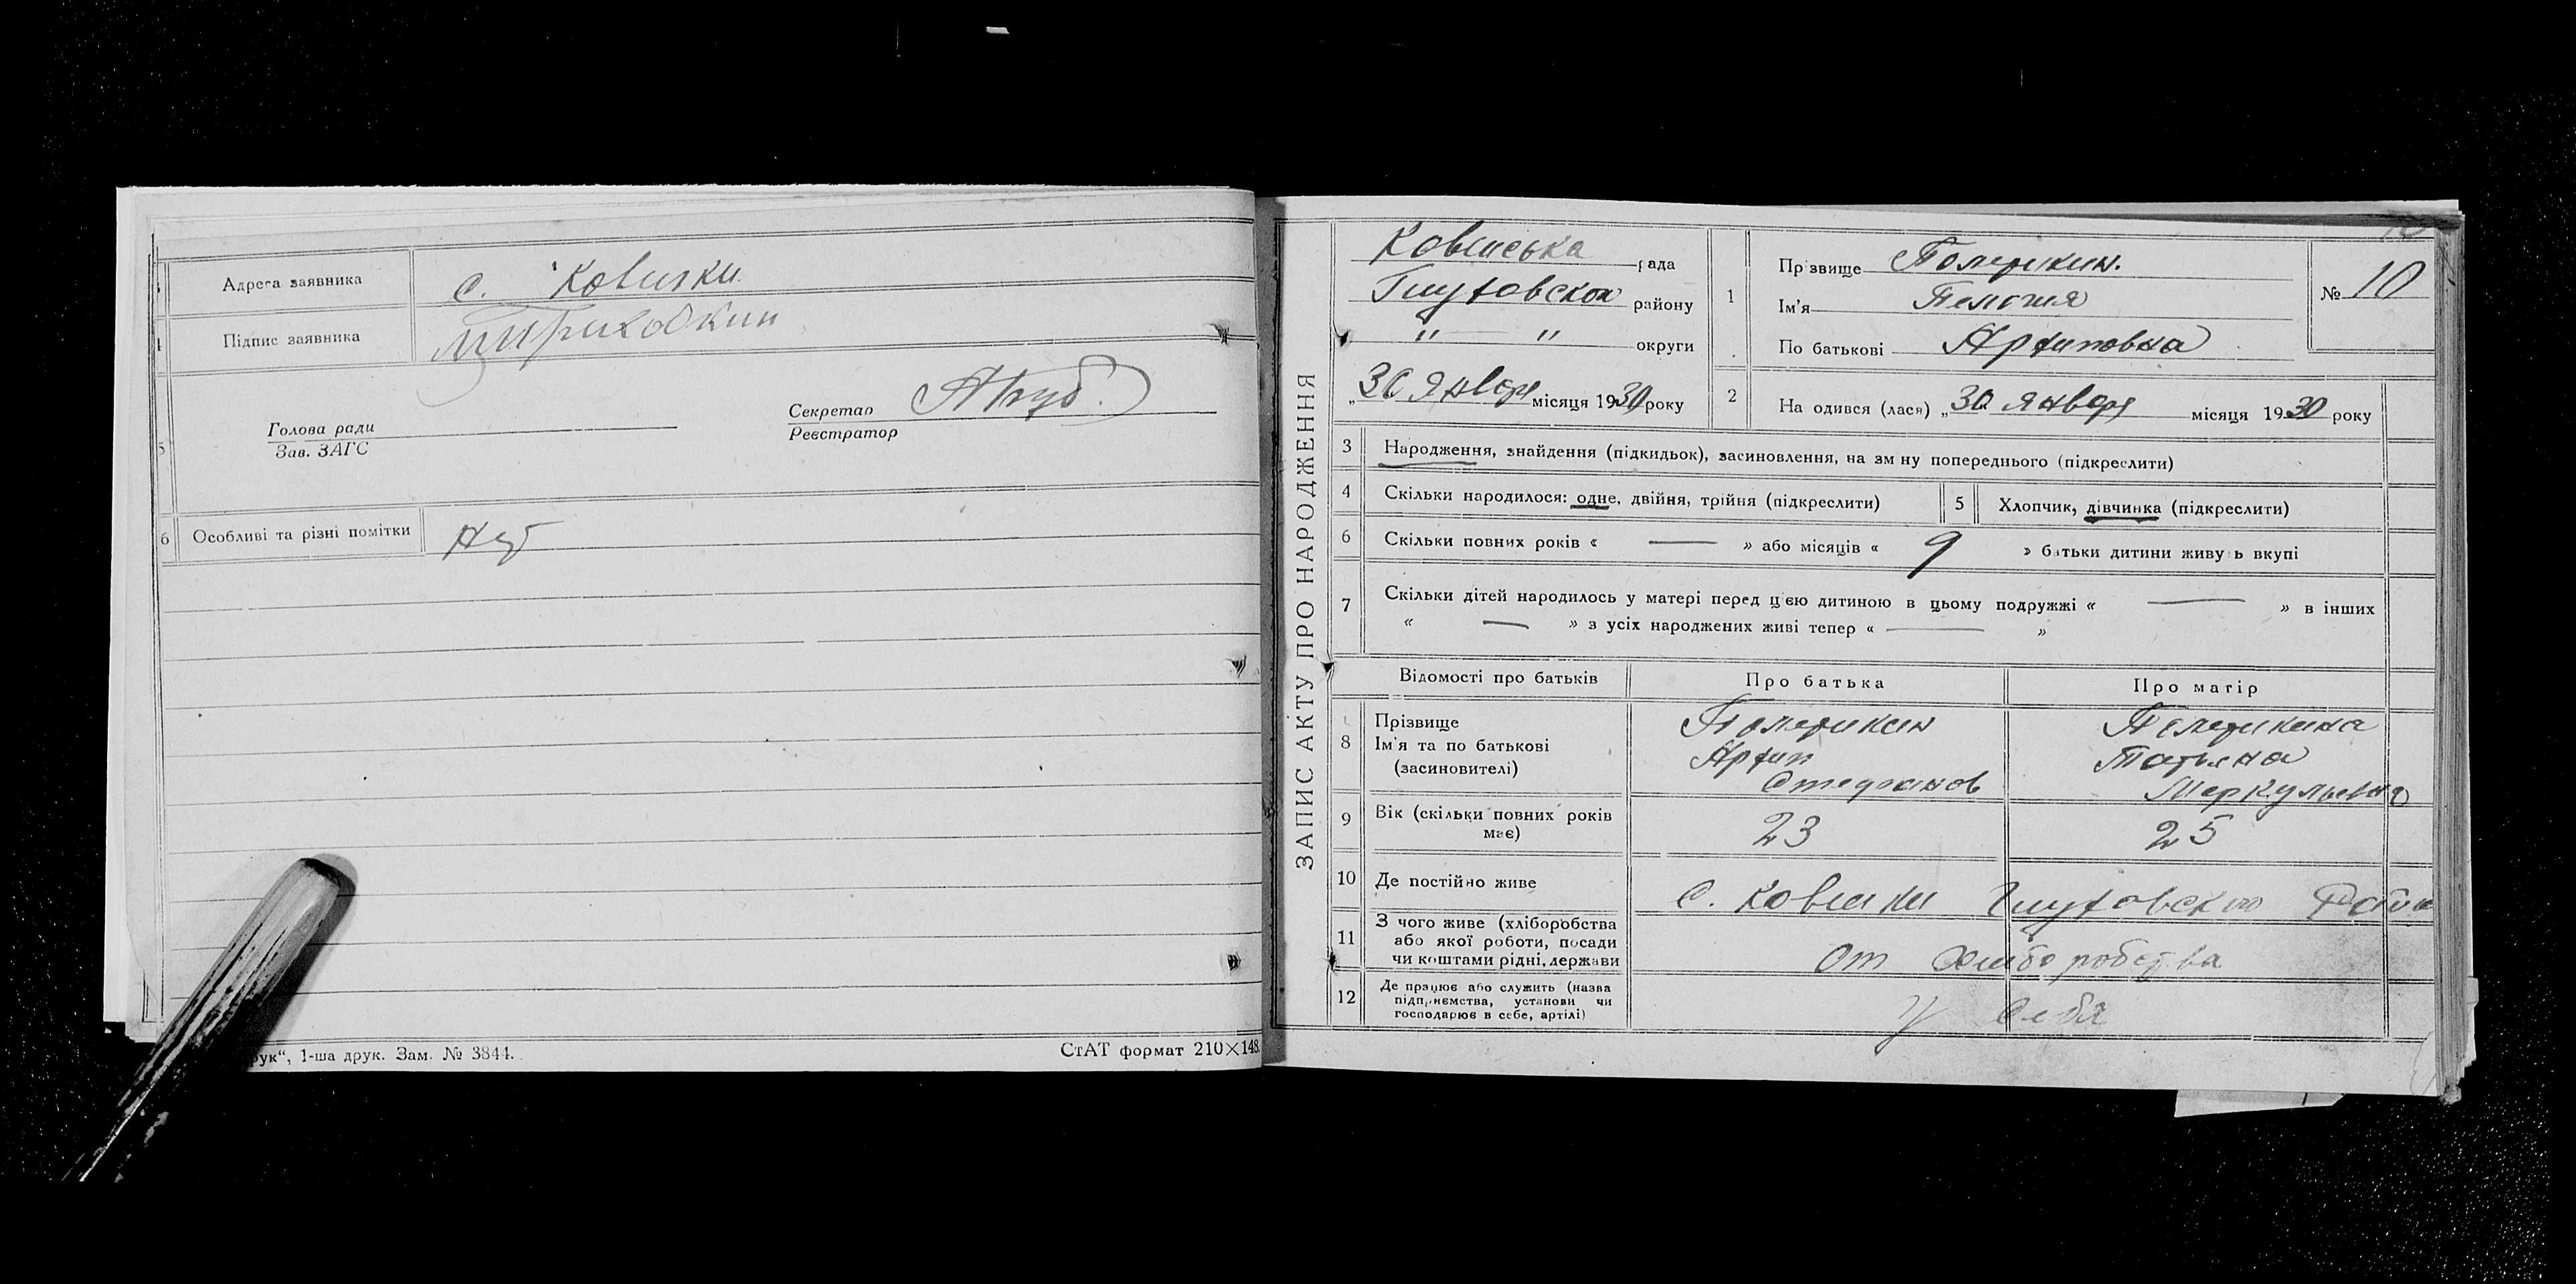 Адреса заявника с. Ковинки
Підпис заявника
Голова ради
Зав. ЗАГС
Секретар
Реєстратор
5
6 Особливі та різні помітки Нет
рук“, 1-ша друк. Зам. № 3844.
СтАТ формат 210×148.
ЗАПИС АКТУ ПРО НАРОДЖЕННЯ
рада
Глуховской району
" — " округи
„30 Января місяця 1930 року
1
Прізвище
Ім'я Пелагия
По батькові Архиповна
№ 10
2 На одився (лася) „30 января місяця 1930 року
3 Народження, знайдення (підкидьок), засиновлення, на зм ну попереднього (підкреслити)
4 Скільки народилося: одне, двійня, трійня (підкреслити)
5 Хлопчик, дівчинка (підкреслити)
6 Скільки повних років « — » або місяців « 9 » батьки дитини живу ь вкупі
7 Скільки дітей народилось у матері перед цією дитиною в цьому подружжі « — » в інших
« — » з усіх народжених живі тепер « — »
Відомості про батьків Про батька Про матір
8 Прізвище
Ім'я та по батькові
(засновителі)
Архип
Стефанов
Татьяна
Меркульевна
9 Вік (скільки повних років
має)
23 25
10 Де постійно живе с. Ковинки Глуховского Району
11 З чого живе (хліборобства
або якої роботи, посади
чи коштами рідні, держави
от хлиборобства
12 Де працює або служить (назва
підприємства, установи чи
господарює в себе, артілі)
у себя